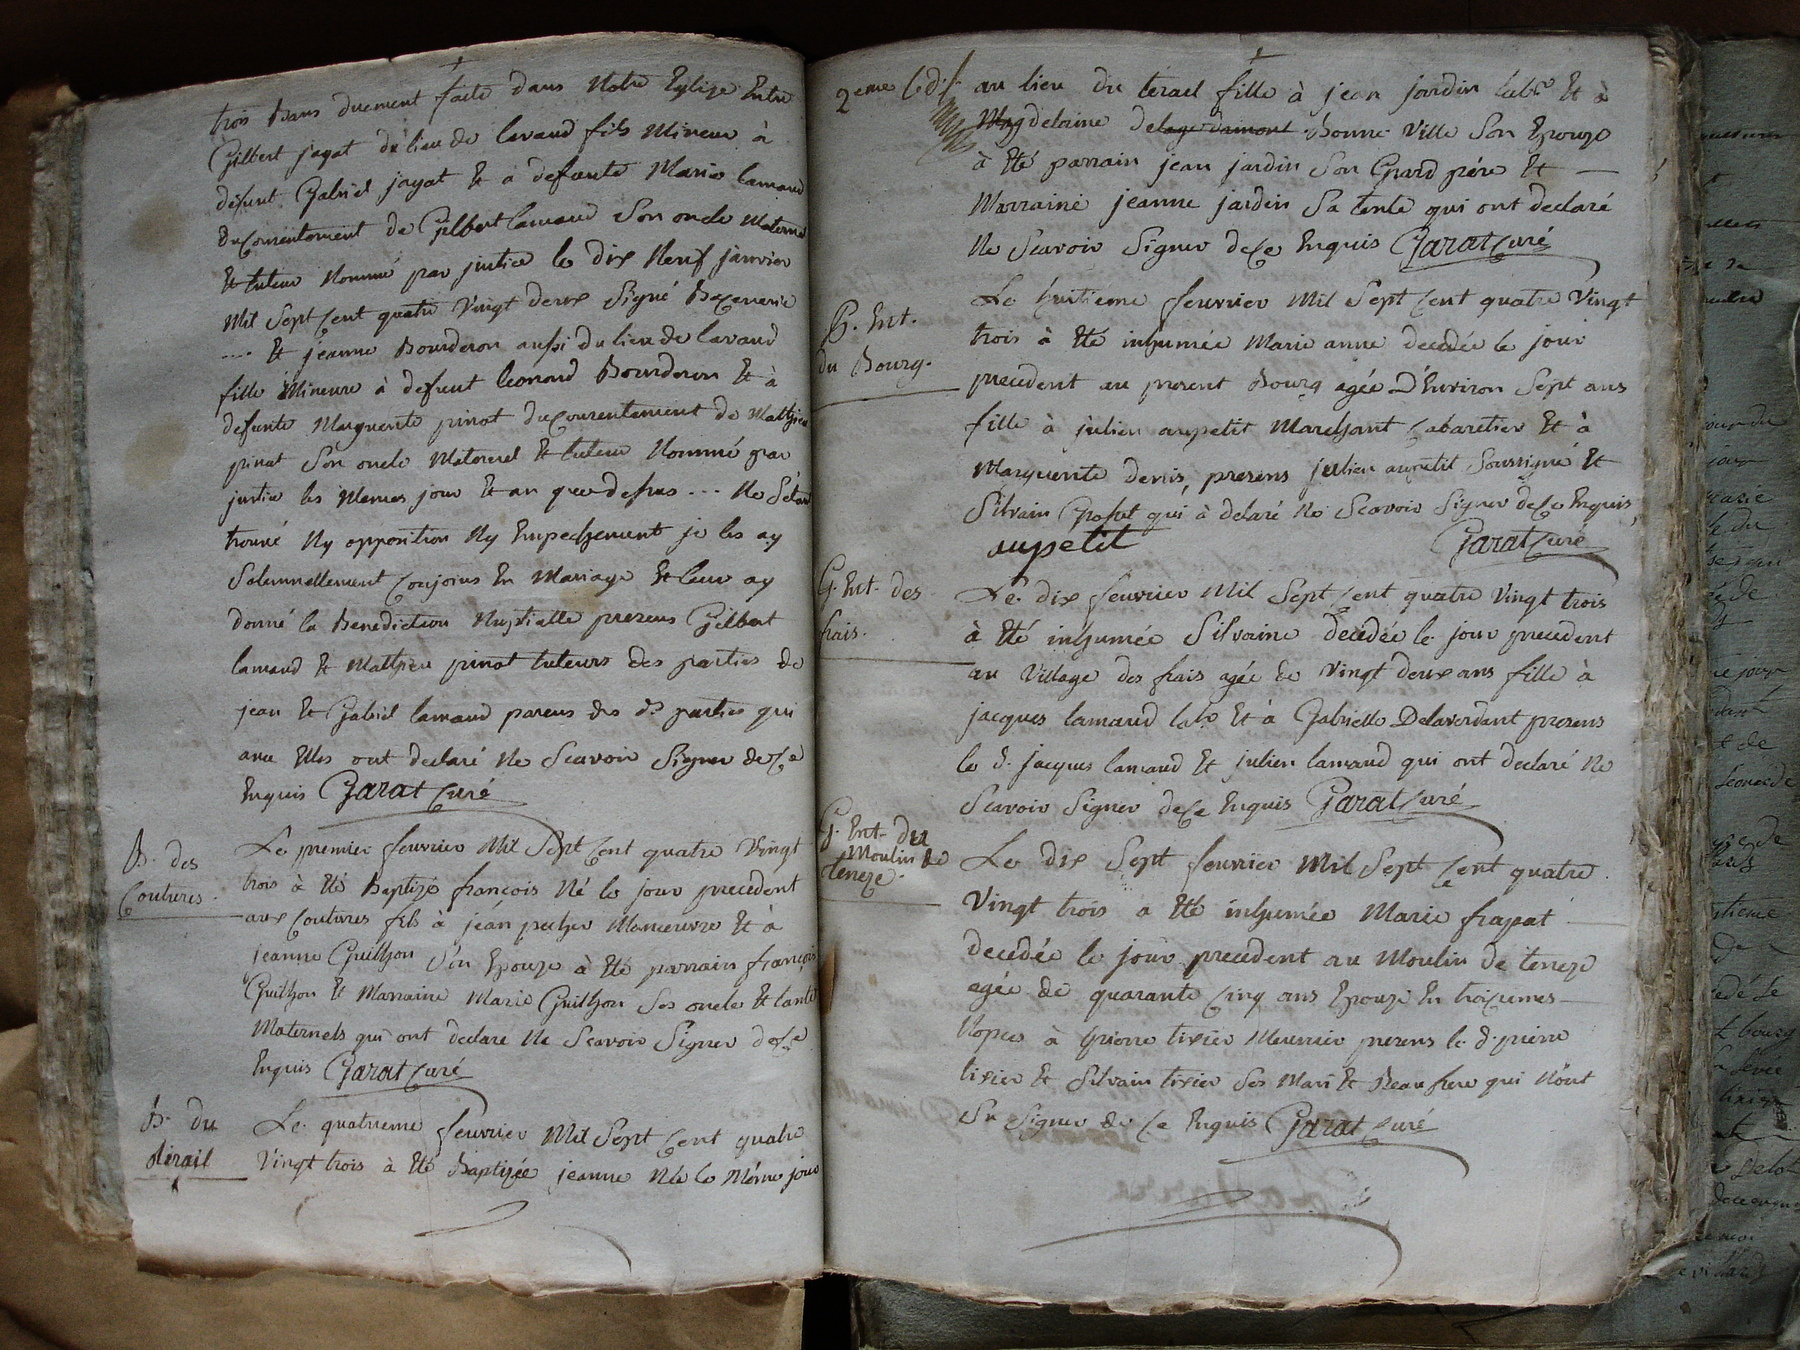 trois Bans duement faite dans Notre Eglise Entre
Gilbert jayat du lieu de lavaud fils Mineur à
défunt Gabriel jayat Et a defunte Marie lamaud
du Consentement de Gilbert lamaud Son oncle Maternel
Et tuteur Nommé par justice le dix Neuf janvier
Mil Sept Cent quatre Vingt deux Signé
.... Et jeanne Bourderon aussi du lieu de lavaud
fille Mineure à defunt leonard Bourderon Et à
defunte Marguerite pinot du Consentement de Mathieu
pinot Son oncle Maternel Et tuteur Nommé par
justice les Memes jour Et an que dessus ... Ne S'etant
trouvé Ny opposition Ny Empechement je les ay
Solemnellement Conjoins En Mariage Et leur ay
donné la Benediction Nuptialle presens Gilbert
lamaud Et Mathieu pinot tuteurs des parties de
jean Et Gabriel lamaud parens des ds parties qui
avec Elles ont declaré Ne Scavoir Signer de Ce
Enquis Garat Curé
B. des
Coutures.
Le premier fevrier Mil Sept Cent quatre Vingt
trois à Eté Baptizé françois Né le jour precedent
aux Coutures fils à jean Manoeuvre Et à
jeanne Guilhon S'on Epouze à Eté parrain françois
Guilhon Et Marraine Marie Guilhon Ses oncle Et tante
Maternels qui ont declare Ne Scavoir Signer de Ce
Enquis Garat Curé
B. du
térail
Le quatrieme fevrier Mil Sept Cent quatre
Vingt trois à Eté Baptizée jeanne Née le Même jour
2eme
au lieu du terail fille à jean jardin labr Et à
Magdelaine Bonne Ville Son Epouze
à Eté parrain jean jardin Son Grand pére Et
Marraine jeanne jardin Sa tente qui ont declaré
Ne Scavoir Signer de Ce Enquis Garat Curé
G. Ent.
du Bourg.
Le huitieme fevrier Mil Sept Cent quatre Vingt
trois à Eté inhumée Marie anne decedée le jour
precedent au present Bourg agée D'Environ Sept ans
fille à julien aupetit Marchant Cabaretier Et à
Marguerite denis, presens julien aupetit Soussigné Et
Silvain qui à delaré Ne Scavoir Signer de Ce Enquis
aupetit Garat Curé
G. Ent. des
frais.
Le dix fevrier Mil Sept Cent quatre Vingt trois
à Eté inhumée Silvaine decedée le jour precedent
au Village des frais agée de Vingt deux ans fille à
jacques lamaud labr Et à Gabrielle Delaverdant presens
le d. jacques lamaud Et julien lamaud qui ont declaré Ne
Scavoir Signer de Ce Enquis Garat Curé
G. Ent. du
Moulin de
teneze.
Le dix Sept fevrier Mil Sept Cent quatre
Vingt trois a Eté inhumée Marie frapat
decedée le jour precedent au Moulin de teneze
agée de quarante Cinq ans Epouze En troizemes
Nopces à pierre tixier Meunier presens le d. pierre
tixier Et Silvain tixier Ses Mari Et Beau frere qui N'ont
Su Signer de Ce Enquis Garat Curé